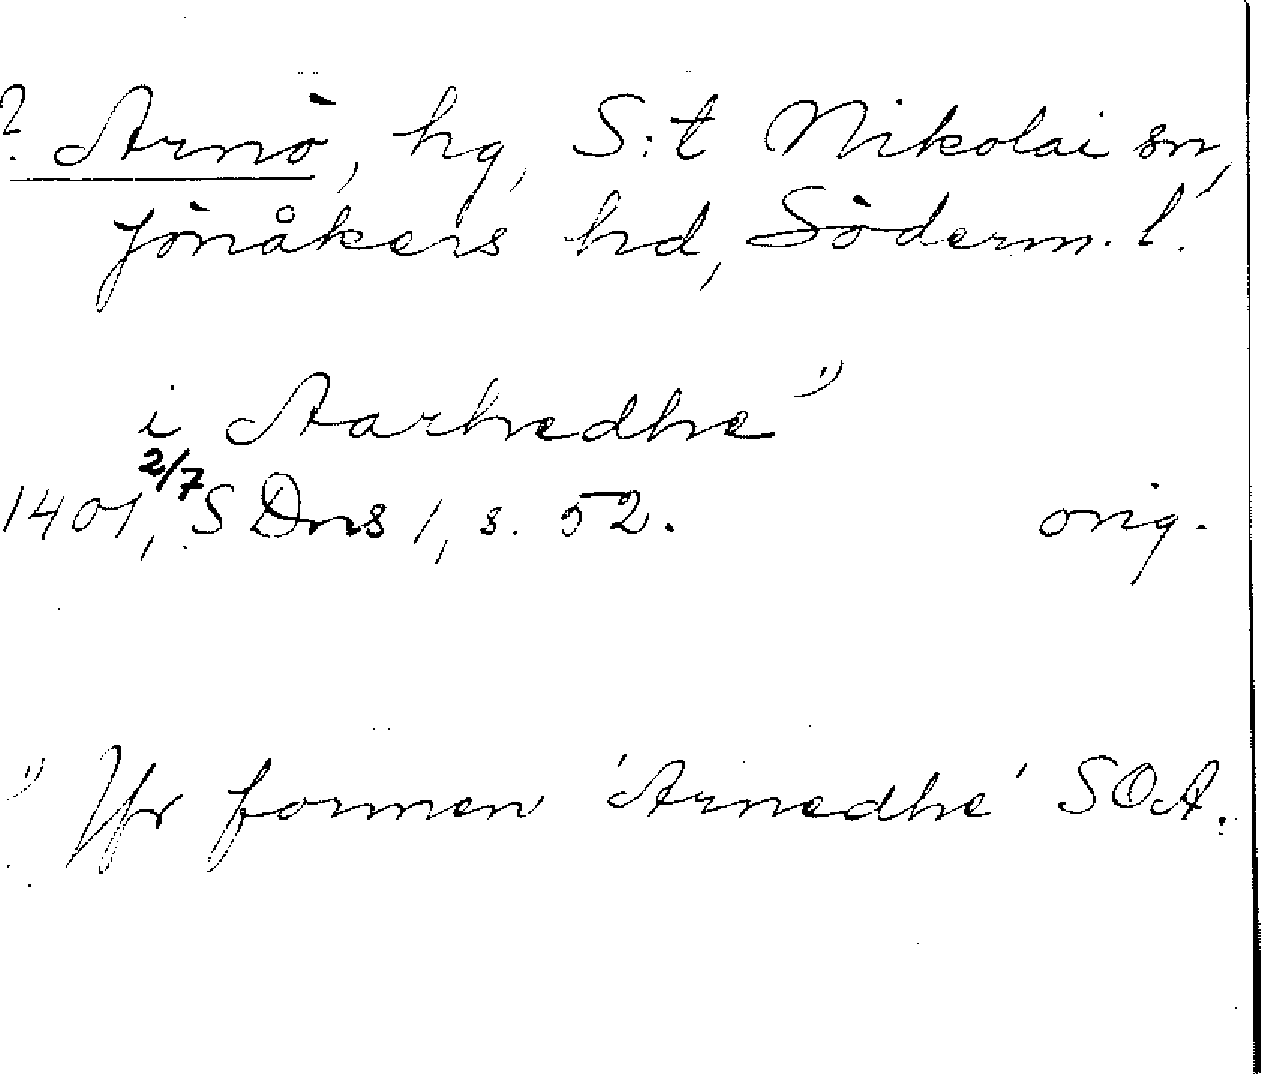 ? Arnö, hg, S:t Nikolai sn,
Jönåkers hd, Söderm. l.
i Aarhedhe ¹⁾
1401, 2/7 SDns 1, s. 52. orig.
¹⁾ Jfr formen 'Arnedhe' SOA.